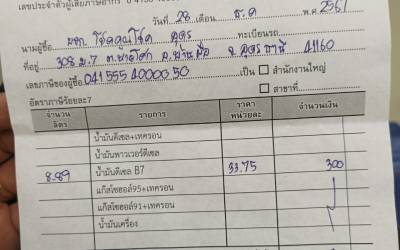 วันที่ 28 เดือน ธ.ค พ.ศ. 2561
นามผู้ซื้อ หจก. โชคคูนโชค อุดร ทะเบียนรถ
ที่อยู่ 308 ม.7 ต. อ.บ้านผือ จ.อุดรธานี 41160
เลขภาษีของผู้ซื้อ 041555 40000 50 เป็น สำนักงานใหญ่
อัตราภาษีร้อยละ7 สาขาที่
จำนวน ลิตร รายการ ราคา หน่วยละ จำนวนเงิน
น้ำมันดีเซล+เทครอน
น้ำมันพาวเวอร์ดีเซล
8.89 น้ำมันดีเซล B7 33.75 300
แก๊สโซฮอล์95+เทครอน
แก๊สโซฮอล์91+เทครอน
น้ำมันเครื่อง